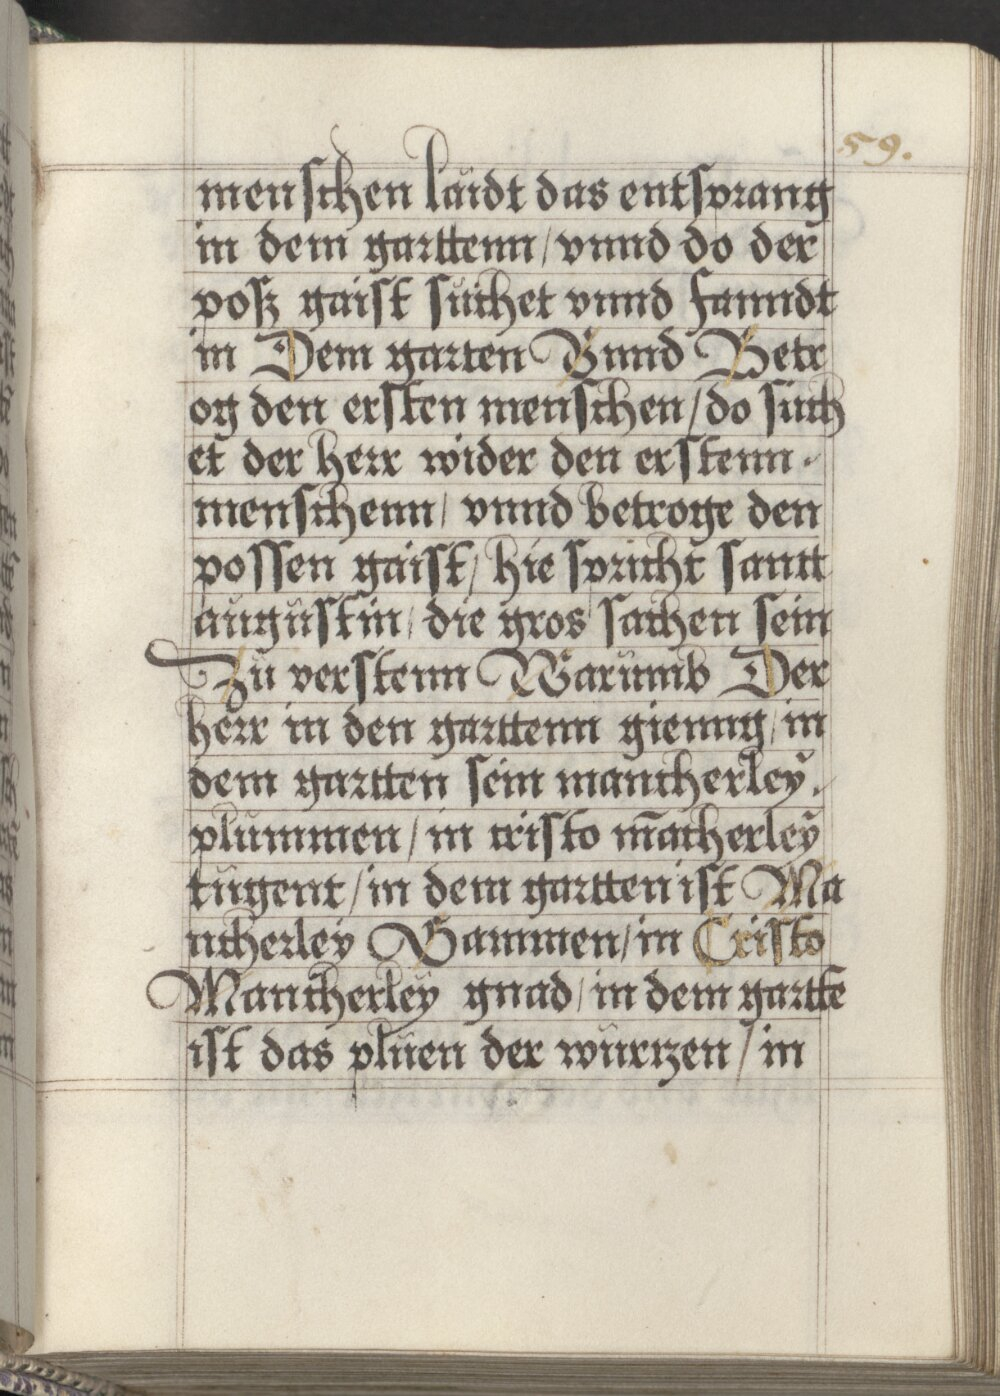 59.
menschen laidt das entsprang
in dem garttenn / vnnd do der
posz gaist suchet vnnd fanndt
in Dem garten Vnnd Betr
og den ersten menschen / do such
et der herr wider den erstenn
menschenn / vnnd betroge den
possen gaist / hie spricht sant
augustin / die gros sachen sein
Zu verstenn Warumb Der
herr in den garttenn gienng / in
dem gartten sein mancherley.
plummen / in cristo mācherley
tugent / in dem gartten ist Ma
ncherley Sammen / in Cristo
Mancherley gnad / in dem gartte
ist das pluen der wurtzen / in